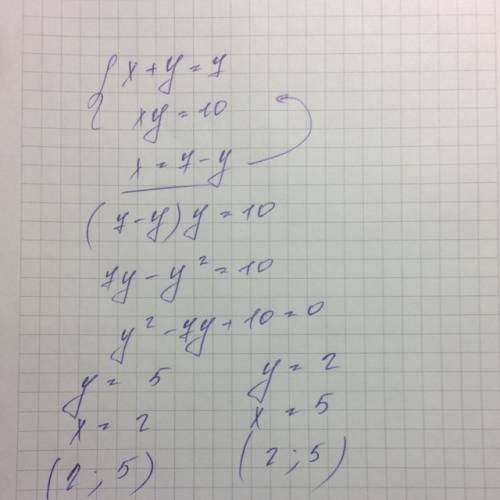 x + y = 7
xy = 10
x = 7 - y
(7 - y) y = 10
7y - y² = 10
y² - 7y + 10 = 0
y = 5 y = 2
x = 2 x = 5
(2 ; 5) (2 ; 5)